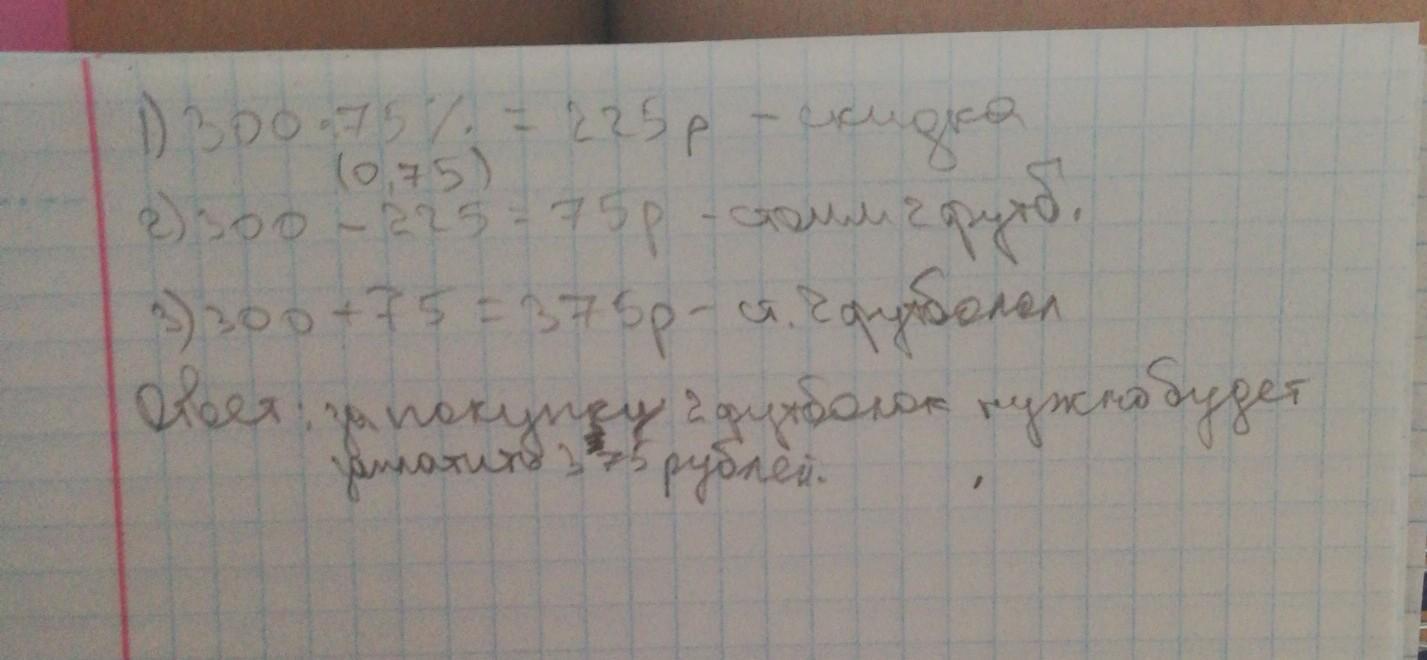 1) 300 · 75% = 225р - скидка
(0,75)
2) 300 - 225 = 75р - стоим 2 футб.
3) 300 + 75 = 375р - ст. 2 футболок
Ответ: за покупку 2 футболок нужно будет
заплатить 375 рублей.